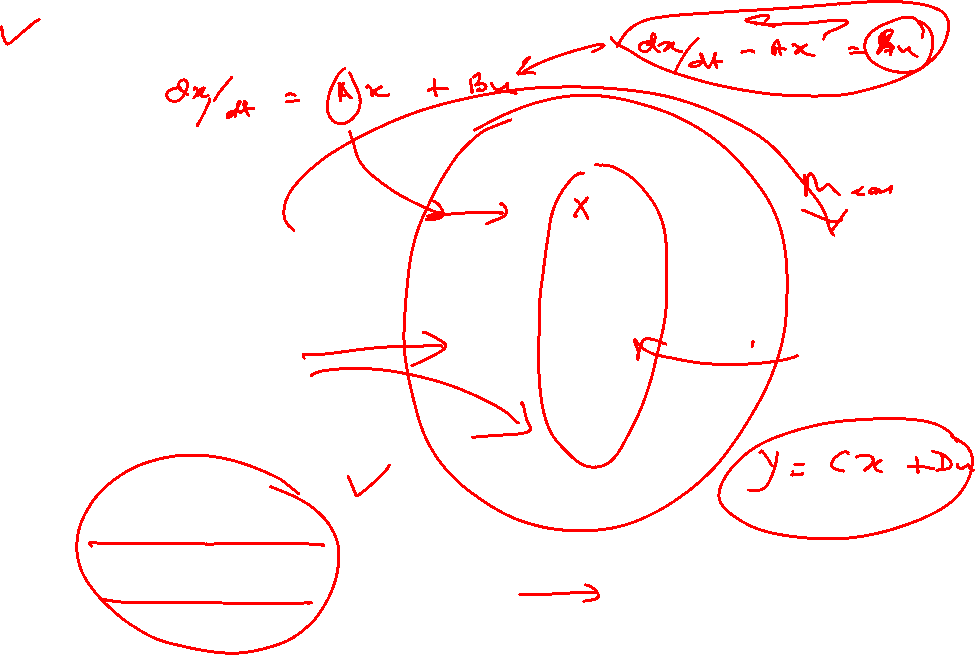 dx/dt - Ax = Bu
dx/dt = Ax + Bu
x
y = Cx + Du